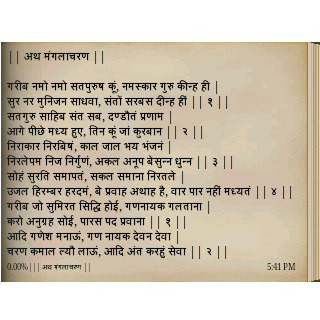 || अथ मंगलाचरण ||
गरीब नमो नमो सतपुरुष कूं, नमस्कार गुरु कीन्ह ही |
सुर नर मुनिजन साधवा, संतों सरबस दीन्ह हीं || १ ||
सतगुरु साहिब संत सब, दण्डौतं प्रणाम |
आगे पीछे मध्य हुए, तिन कूं जां कुरबान || २ ||
निराकार निरबिषं, काल जाल भय भंजनं |
निरलेपम निज निर्गुणं, अकल अनूप बेसुन्न धुन्न || ३ ||
सोहं सुरति समापतं, सकल समाना निरतले |
उजल हिरम्बर हरदमं, बे प्रवाह अथाह है, वार पार नहीं मध्यतं || ४ ||
गरीब जो सुमिरत सिद्धि होई, गणनायक गलताना |
करो अनुग्रह सोई, पारस पद प्रवाना || १ ||
आदि गणेश मनाऊं, गण नायक देवन देवा |
चरण कमाल ल्यौ लाऊं, आदि अंत करहुं सेवा || २ ||
0.00% || अथ मंगलाचरण || 5:41 PM